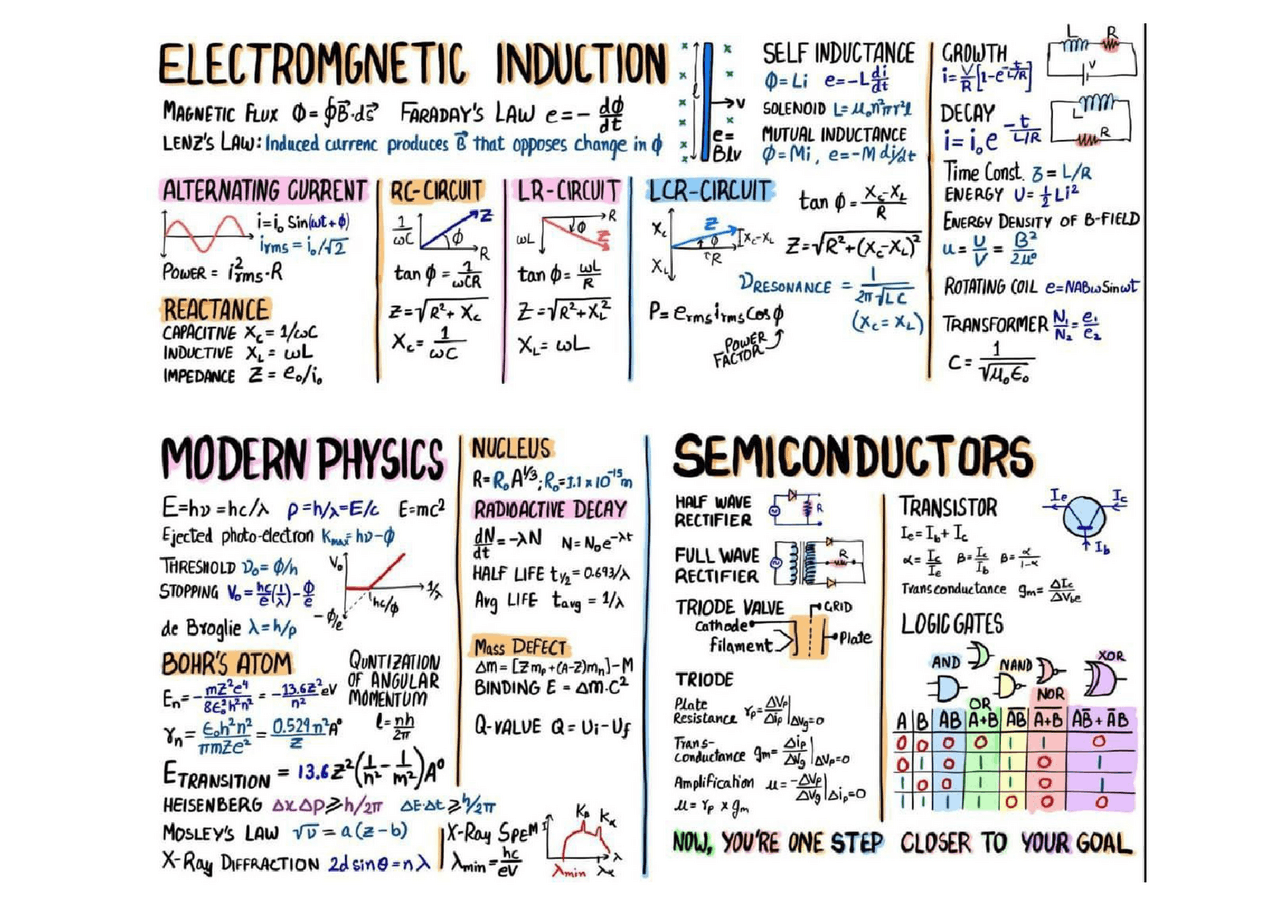 ELECTROMGNETIC INDUCTION
MAGNETIC FLUX Φ = ∮B⃗·ds⃗ FARADAY'S LAW e = - dϕ/dt
LENZ'S LAW: Induced currenc produces B⃗ that opposes change in ϕ
v
e =
Blv
SELF INDUCTANCE
Φ = Li e = -L di/dt
SOLENOID L = μ₀n²πr²l
MUTUAL INDUCTANCE
Φ = Mi, e = -M di/dt
GROWTH
i = V/R [1-e^-t/L/R]
L R
V
DECAY
i = i₀e^-t/L/R
L
R
Time Const. ʒ = L/R
ENERGY U = ½Li²
ENERGY DENSITY OF B-FIELD
u = U/V = B²/2μ⁰
ROTATING COIL e = NABωSinωt
TRANSFORMER N₁/N₂ = e₁/e₂
C = 1/√μ₀ϵ₀
ALTERNATING CURRENT
i = i₀ Sin(ωt + ϕ)
irms = i₀/√2
POWER = i²rms·R
REACTANCE
CAPACITIVE Xc = 1/ωC
INDUCTIVE X_L = ωL
IMPEDANCE Z = e₀/i₀
RC-CIRCUIT
1/ωC Z ϕ R
tan ϕ = 1/ωCR
Z = √R² + Xc
Xc = 1/ωC
LR-CIRCUIT
ωL R ϕ Z
tan ϕ = ωL/R
Z = √R² + X_L²
X_L = ωL
LCR-CIRCUIT
Xc Z ϕ Xc-X_L
X_L R
tan ϕ = Xc-X_L/R
Z = √R² + (Xc-X_L)²
νRESONANCE = 1/2π√LC
(Xc = X_L)
P = erms irms Cos ϕ
POWER
FACTOR
MODERN PHYSICS
E = hν = hc/λ p = h/λ = E/c E = mc²
Ejected photo-electron Kmax = hν-ϕ
THRESHOLD ν₀ = ϕ/h
STOPPING V₀ = hc/e (1/λ) - ϕ/e
V₀ 1/λ hc/ϕ -ϕ/e
de Broglie λ = h/p
BOHR'S ATOM
En = - mZ²e⁴/8ε₀²h²n² = -13.6Z²/n² eV
rn = ϵ₀h²n²/πmZe² = 0.529n²A⁰/Z
QUNTIZATION
OF ANGULAR
MOMENTUM
l = nh/2π
ETRANSITION = 13.6Z²(1/n² - 1/m²)A⁰
HEISENBERG Δx Δp ⩾ h/2π ΔE·Δt ⩾ h/2π
MOSLEY'S LAW √ν = a(z-b)
X-RAY DIFFRACTION 2d sinθ = nλ
X-Ray SPEM
λmin = hc/eV
Kβ Kα
λmin λα λ
NUCLEUS
R = R₀A^1/3; R₀ = 1.1 × 10⁻¹⁵m
RADIOACTIVE DECAY
dN/dt = -λN N = N₀e^-λt
HALF LIFE t½ = 0.693/λ
Avg LIFE tavg = 1/λ
Mass DEFECT
Δm = [Zmp + (A-Z)mn] - M
BINDING E = Δm·C²
Q-VALUE Q = Ui - Uf
SEMICONDUCTORS
HALF WAVE
RECTIFIER
R
FULL WAVE
RECTIFIER
R
TRIODE VALVE
GRID
Cathode
filament
Plate
TRIODE
Plate
Resistance rp = ΔVp/Δip |ΔVg=0
Trans-
Conductance gm = Δip/ΔVg |ΔVp=0
Amplification μ = -ΔVp/ΔVg |Δip=0
μ = rp × gm
TRANSISTOR
Ie = Ib + Ic
α = Ic/Ie β = Ic/Ib β = α/1-α
Transconductance gm = ΔIc/ΔVbe
Ie Ic
Ib
LOGIC GATES
AND OR NAND NOR XOR
A B AB A+B A̅B̅ A̅+̅B̅ AB̅ + A̅B
0 0 0 0 1 1 0
0 1 0 1 1 0 1
1 0 0 1 1 0 1
1 1 1 1 0 0 0
NOW, YOU'RE ONE STEP CLOSER TO YOUR GOAL